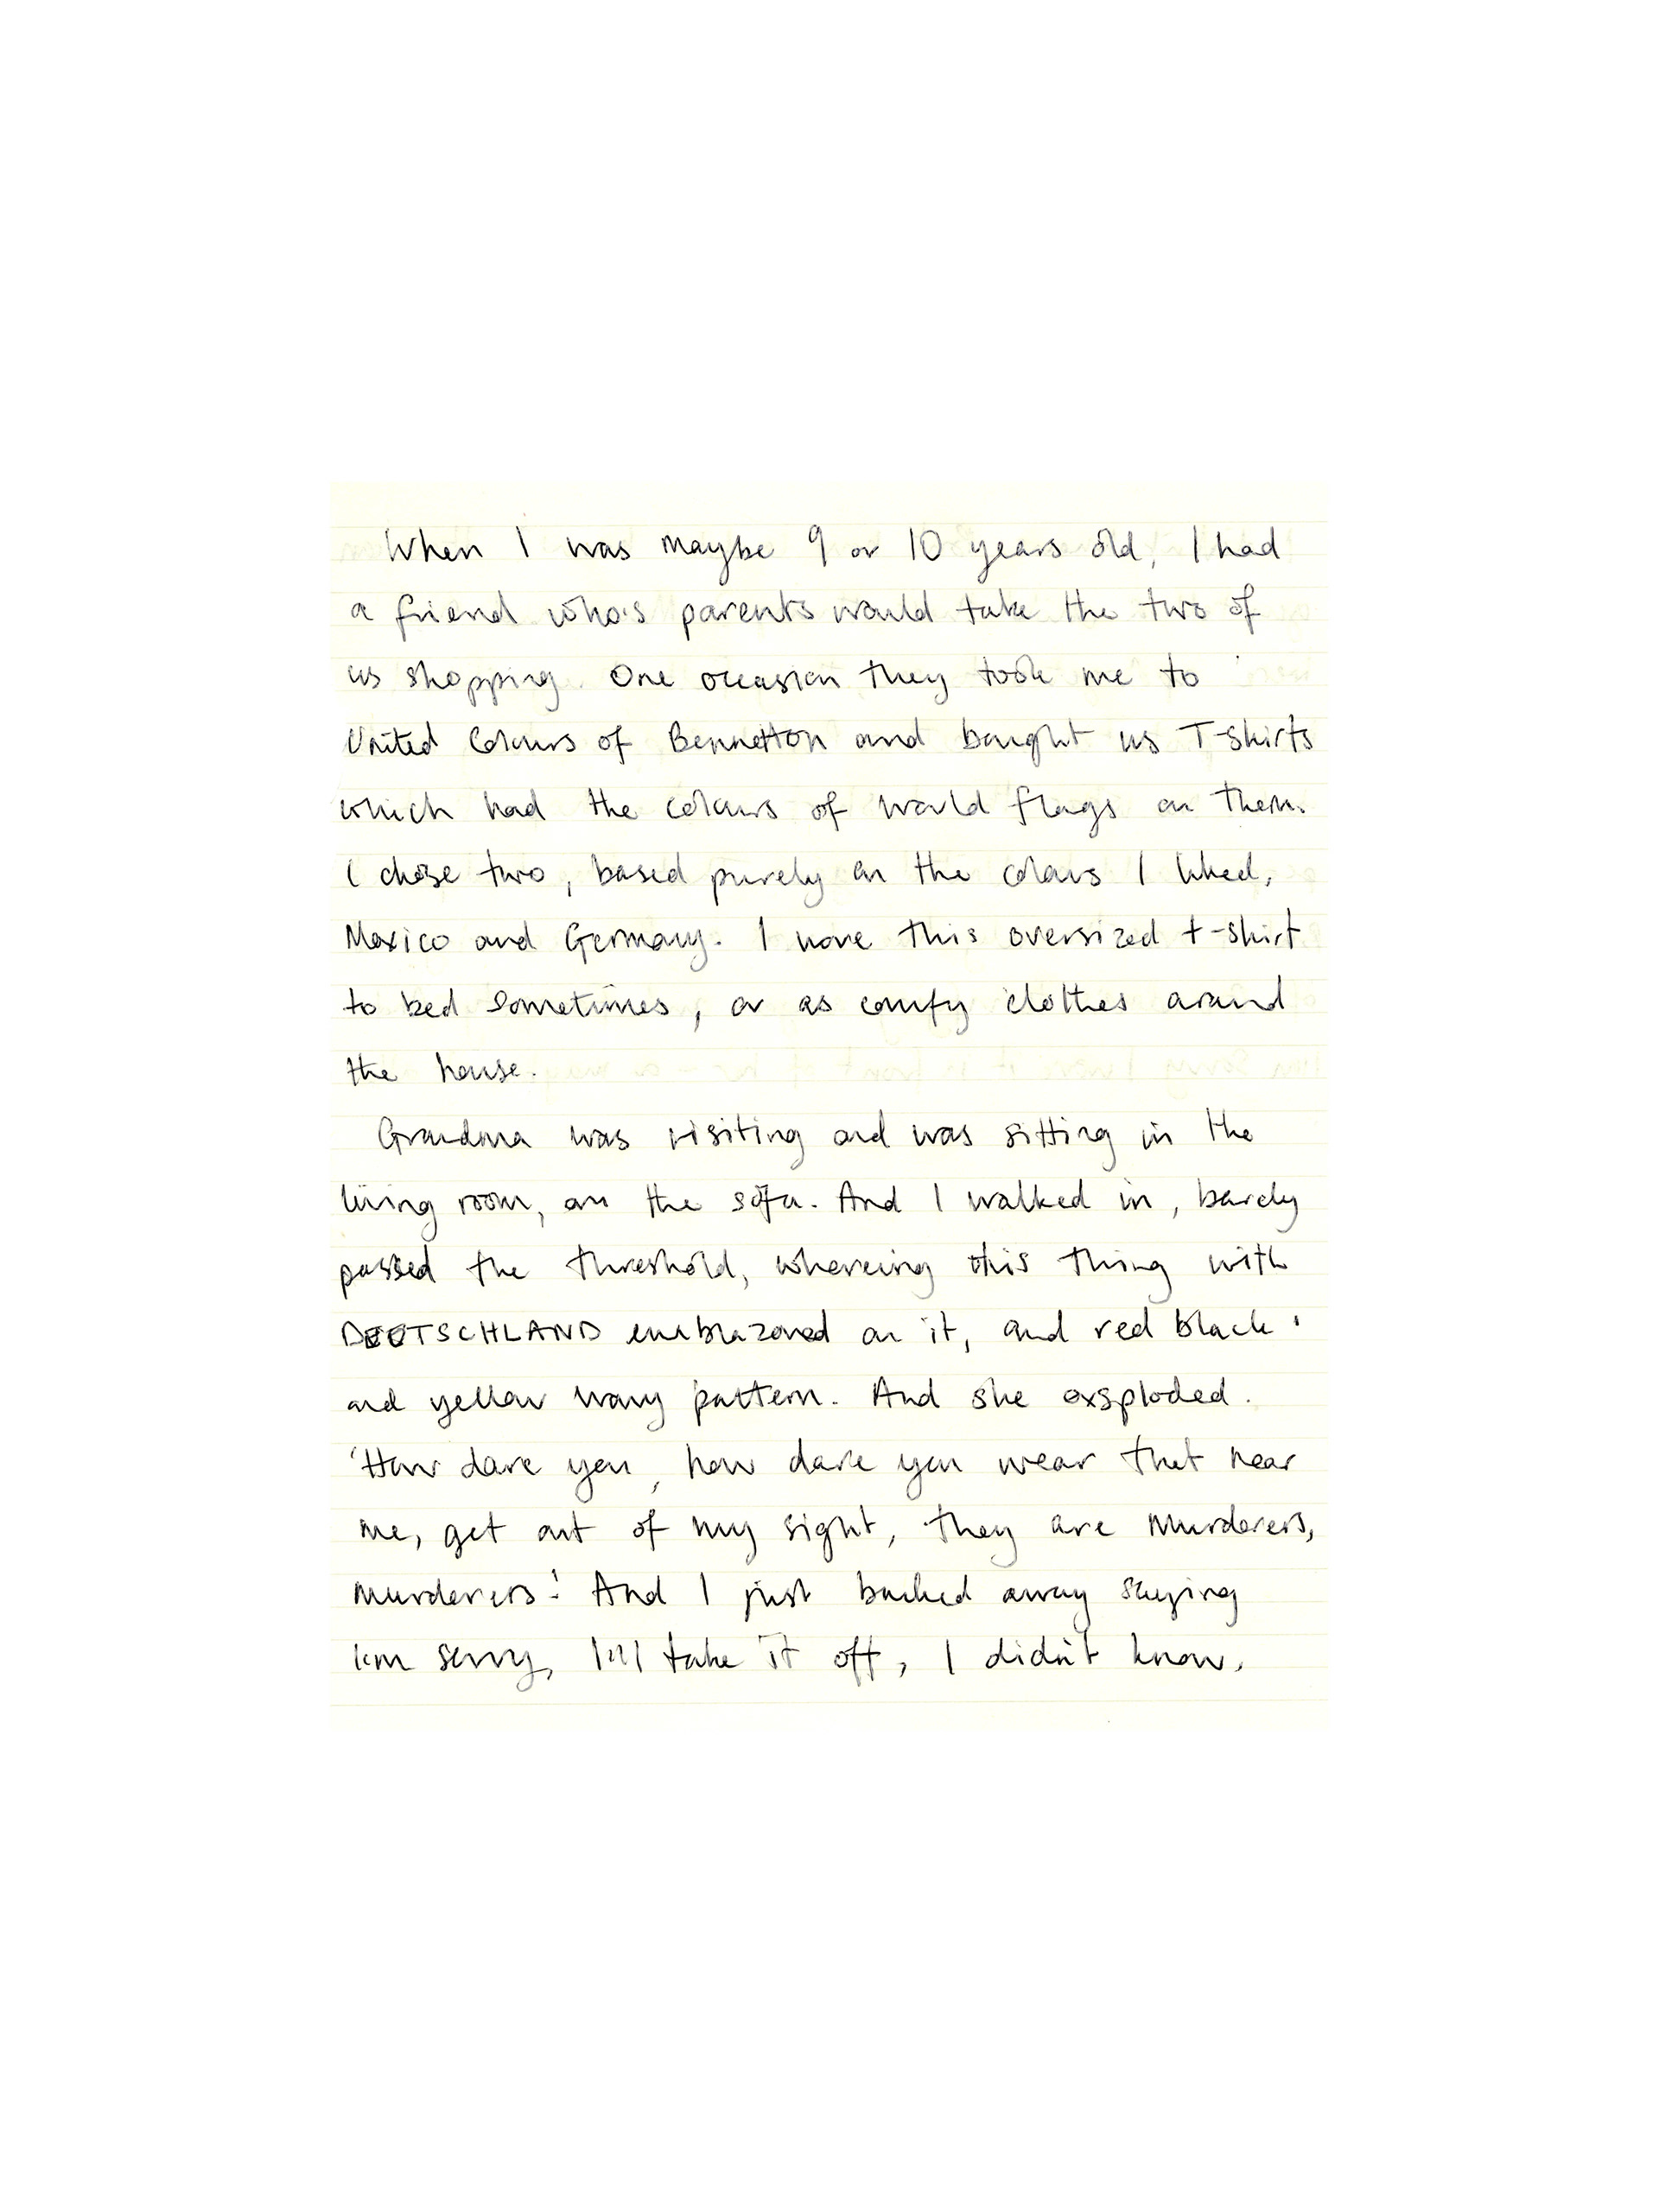 When I was maybe 9 or 10 years old, I had
a friend who's parents would take the two of
us shopping. One occasion they took me to
United Colours of Bennetton and bought us T-shirts
which had the colours of world flags on them.
I chose two, based purely on the colours I liked,
Mexico and Germany. I wore this oversized t-shirt
to bed sometimes, or as comfy clothes around
the house.
Grandma was visiting and was sitting in the
living room, on the sofa. And I walked in, barely
passed the threshold, whereing this thing with
DEUTSCHLAND emblazoned on it, and red black
and yellow wavy pattern. And she exsploded.
'How dare you, how dare you wear that near
me, get out of my sight, they are murderers,
murderers! And I just backed away saying
I'm sorry, I'll take it off, I didn't know.